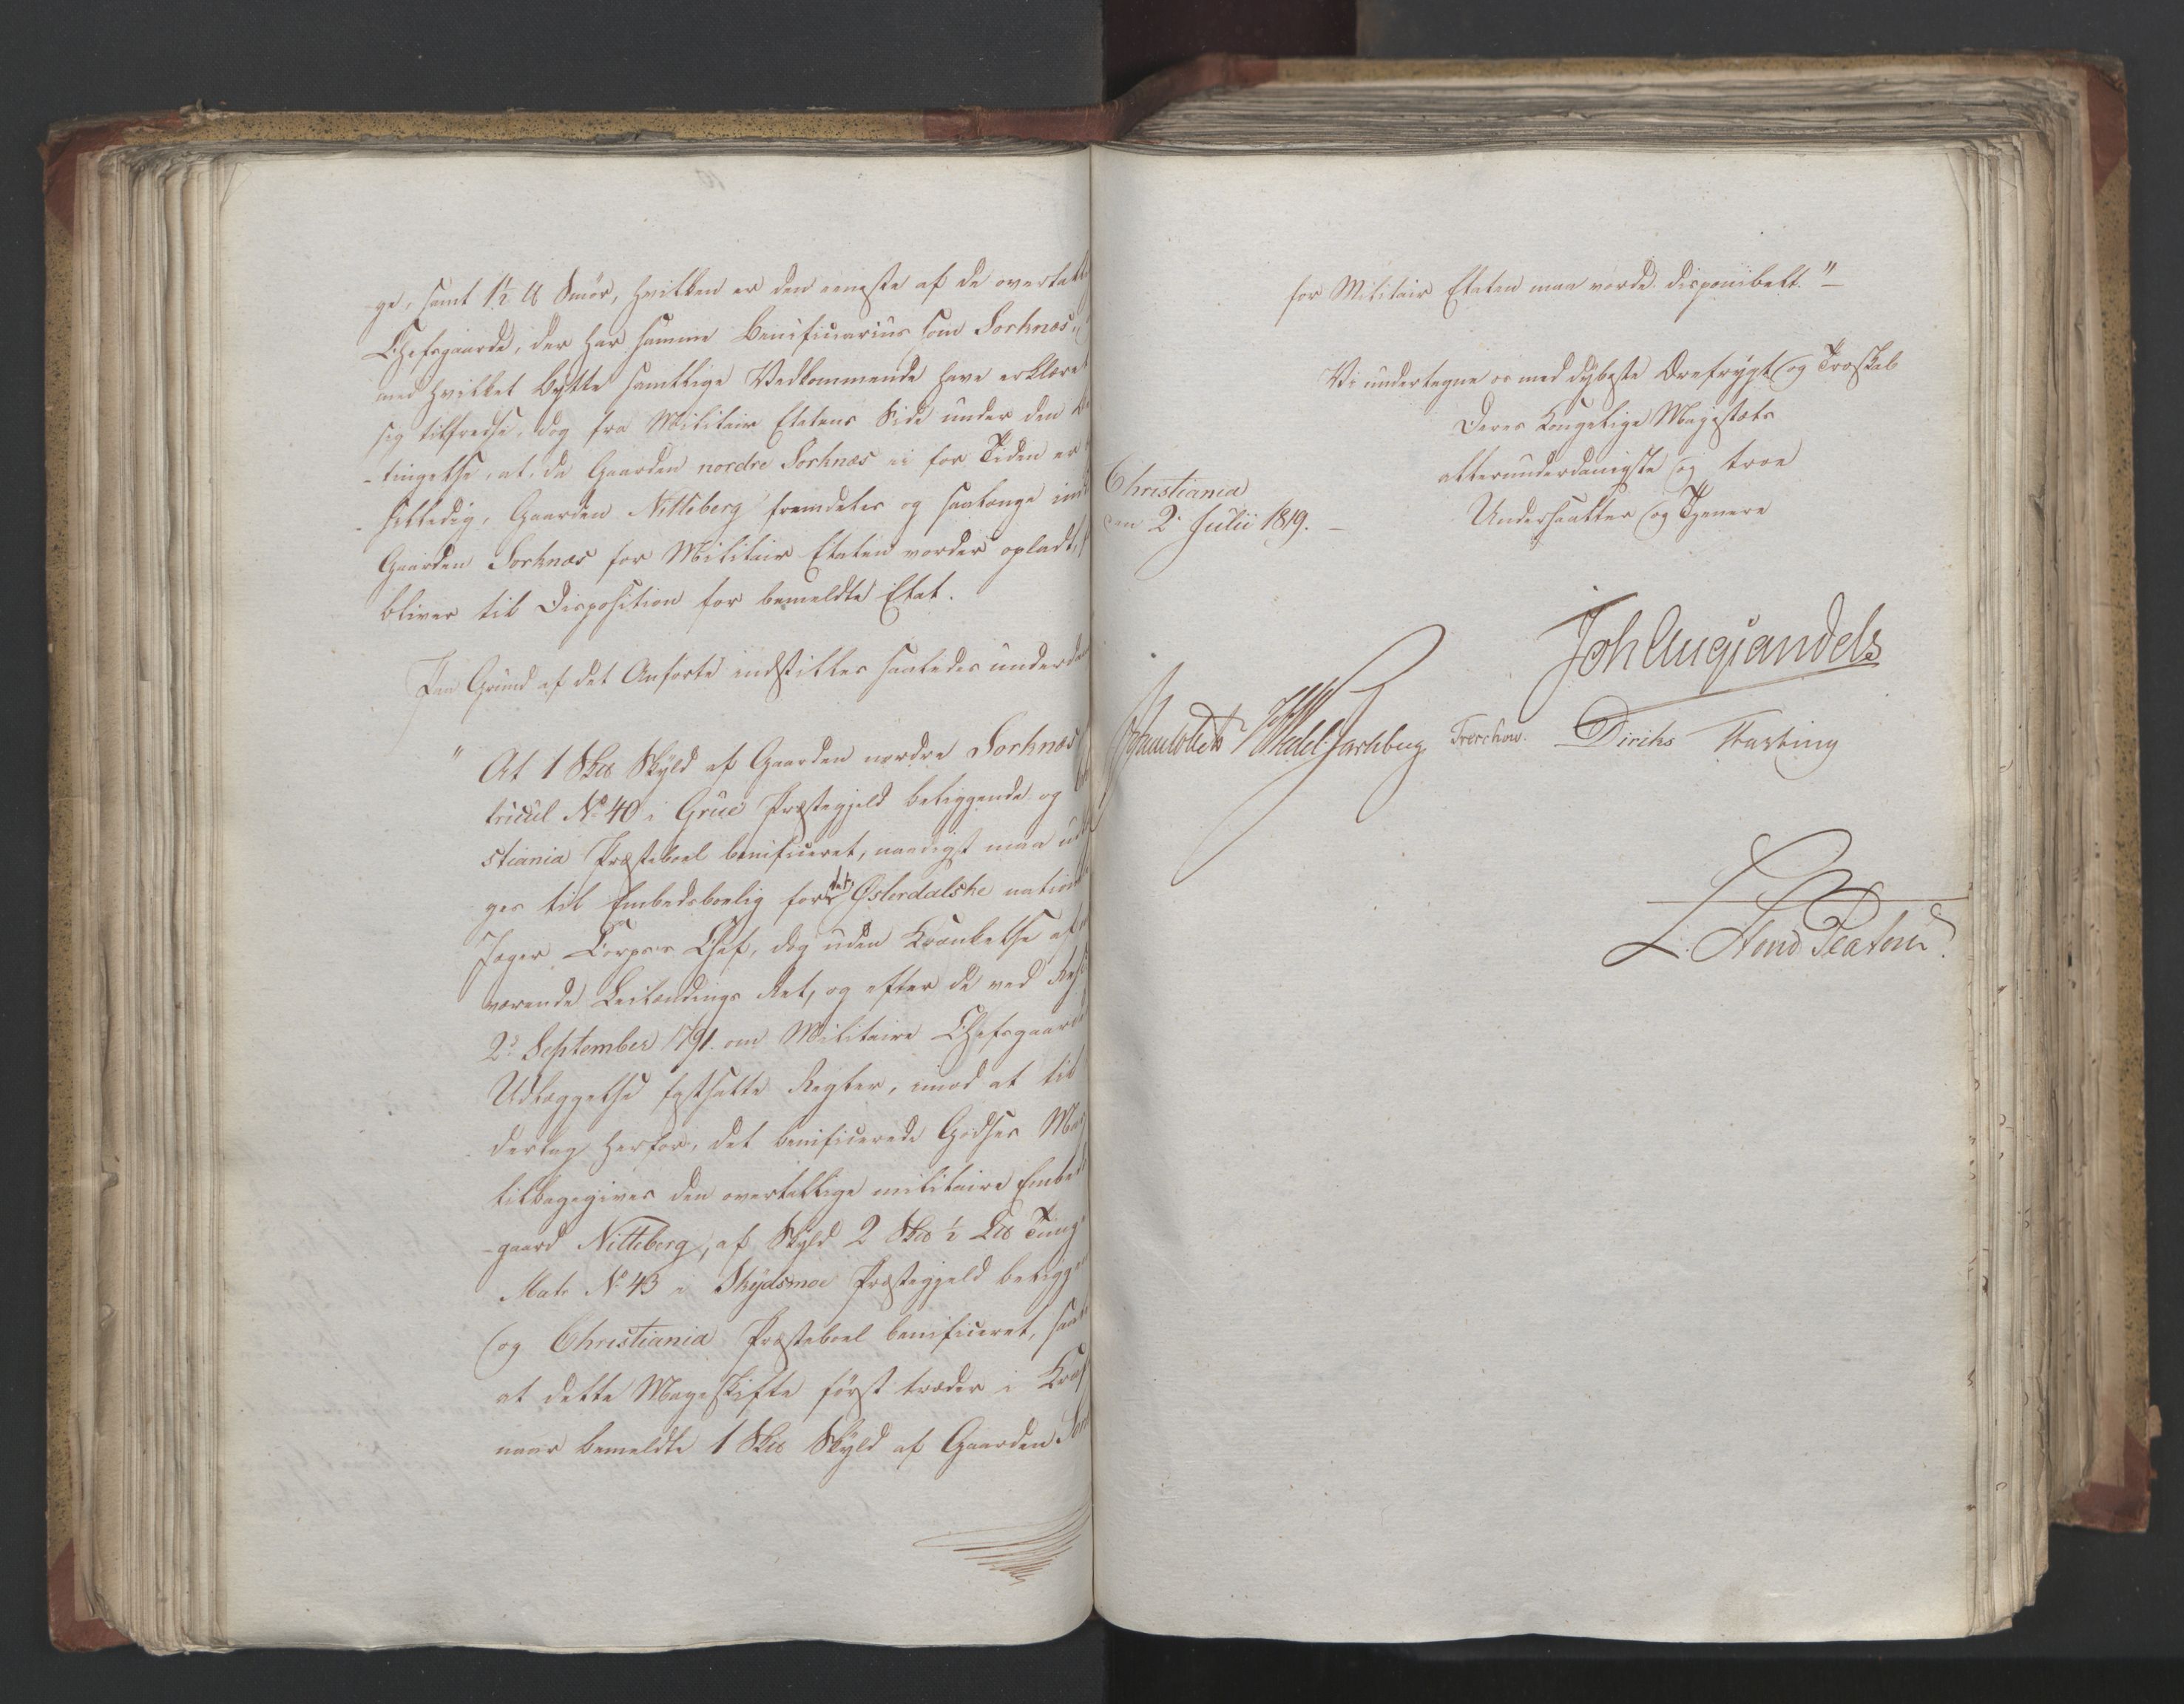 ge, samt 1½ ℔ Smör, hvilken er den eeneste af de overtall
Chefsgaarde, der har samme Benificiarius som Sorknæs,
med hvilket Bytte samtlige Vedkommende have erklæret
sig tilfredse, dog fra Militair Etatens Side under den Be
-tingelse, at, da Gaarden nordre Sorknæs ei for Tiden er
-fælledig, Gaarden Nitteberg fremdeles og saalænge ind
Gaarden Sorknæs for Militair Etaten vorder opladt,
bliver til Disposition for bemeldte Etat.
Paa Grund af det Anførte indstilles saaledes underda
" At 1 Sk℔ Skyld af Gaarden nordre Sorknæs
tricul No 40 i Grue Præstegjeld beliggende og
stiania Præsteboel benificeret, naadigst maa ud
ges til Embedsbolig for det Østerdalske nation
Jæger Corps's Chef, dog uden Krænkelse af
værende Leilændings Ret, og efter de ved Res
2d September 1791 om Militaire Chefsgaard
Udlæggelse fastsatte Regler, imod at til
derlag herfor, det benificerede Godses Mas
tilbagegives den overtallige militaire Embed
-gaard Nitteberg, af Skyld 2 Sk℔ ½ L℔ Tunge
Matr No 43 i Skydsmoe Præstegjeld beligge
og Christiania Præsteboel benificeret, samt
at dette Mageskifte først træder i Kraf
naar bemeldte 1 Sk℔ Skyld af Gaarden Sor
for Militair Etaten maa vorde disponibelt."
Vi undertegne os med dybeste Ærefrygt og Troskab
Deres Kongelige Majestæts
allerunderdanigste og troe
Undersaatter og Tjenere
Christiania
den 2d Julii 1819.
Joh Aug Sandels
Wedel Jarlsberg Treschow. Diriks Fasting
L. Stoud Platou